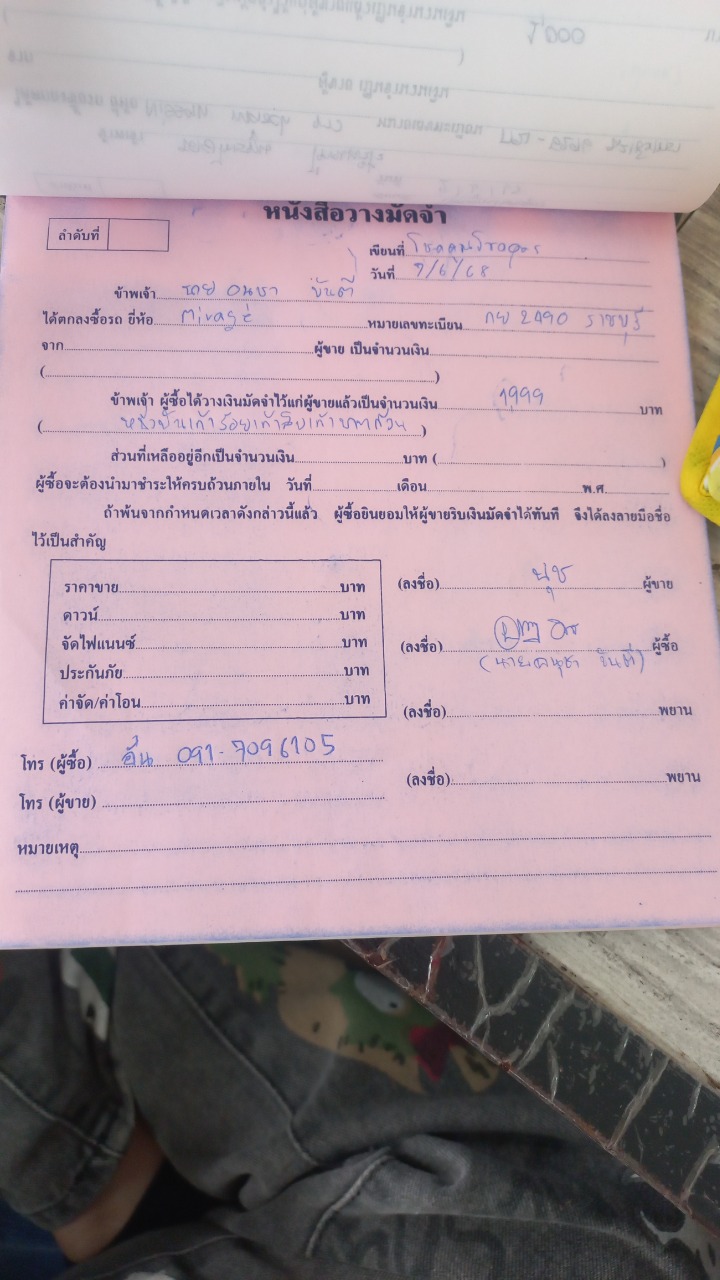 หนังสือวางมัดจำ
ลำดับที่
เขียนที่
วันที่ 7/6/68
ข้าพเจ้า นาย อนุชา ขันตี
ได้ตกลงซื้อรถ ยี่ห้อ Mirage หมายเลขทะเบียน กย 2490 ราชบุรี
จาก ผู้ขาย เป็นจำนวนเงิน
( )
ข้าพเจ้า ผู้ซื้อได้วางเงินมัดจำไว้แก่ผู้ขายแล้วเป็นจำนวนเงิน 1999 บาท
(หนึ่งพันเก้าร้อยเก้าสิบเก้าบาทถ้วน)
ส่วนที่เหลืออยู่อีกเป็นจำนวนเงิน บาท ( )
ผู้ซื้อจะต้องนำมาชำระให้ครบถ้วนภายใน วันที่ เดือน พ.ศ.
ถ้าพ้นจากกำหนดเวลาดังกล่าวนี้แล้ว ผู้ซื้อยินยอมให้ผู้ขายริบเงินมัดจำได้ทันที จึงได้ลงลายมือชื่อ
ไว้เป็นสำคัญ
ราคาขาย บาท
ดาวน์ บาท
จัดไฟแนนซ์ บาท
ประกันภัย บาท
ค่าจัด/ค่าโอน บาท
(ลงชื่อ) นุช ผู้ขาย
(ลงชื่อ) ผู้ซื้อ
(นายอนุชา ขันตี)
(ลงชื่อ) พยาน
(ลงชื่อ) พยาน
โทร (ผู้ซื้อ) 091-7096105
โทร (ผู้ขาย)
หมายเหตุ